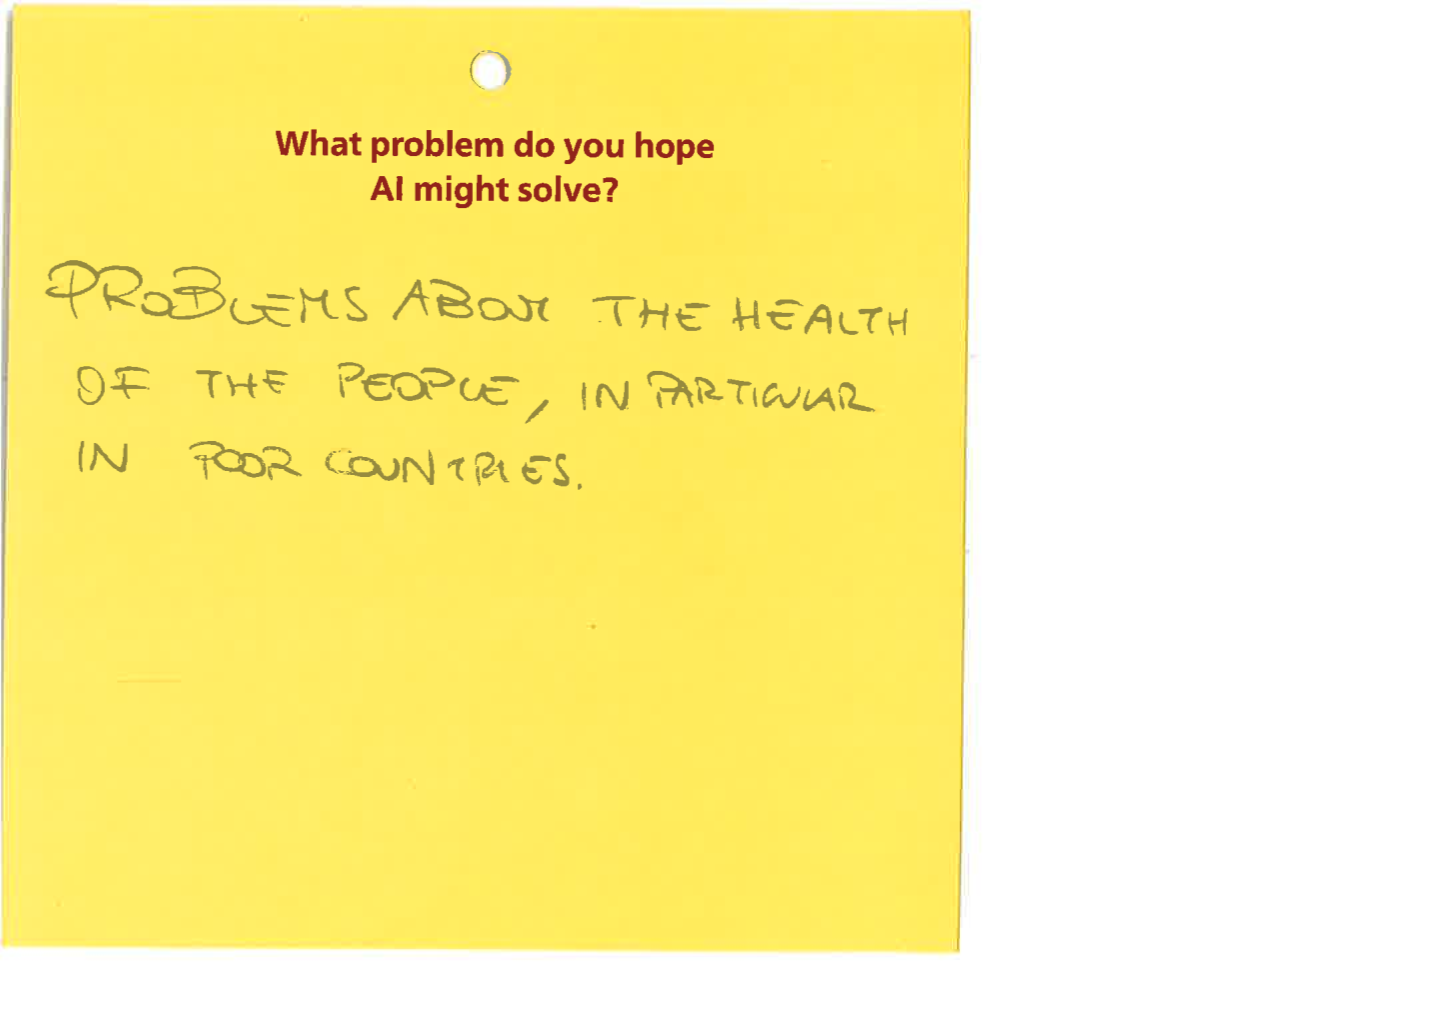 What problem do you hope
AI might solve?
PROBLEMS ABOUT THE HEALTH
OF THE PEOPLE, IN PARTICULAR
IN POOR COUNTRIES.